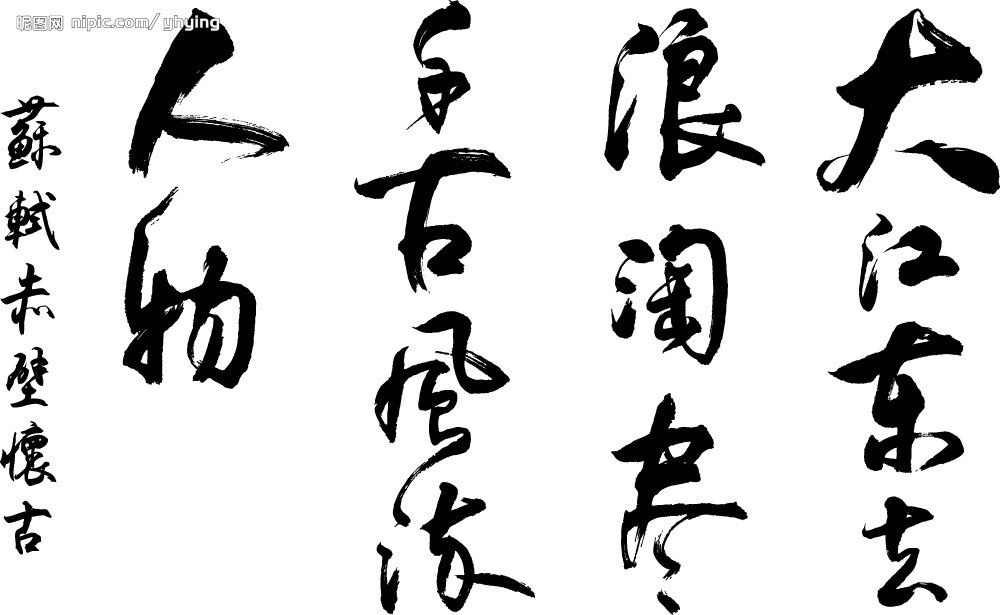 大江东去
浪淘尽
千古風流
人物
蘇軾赤壁懷古
昵图网 nipic.com/yhying